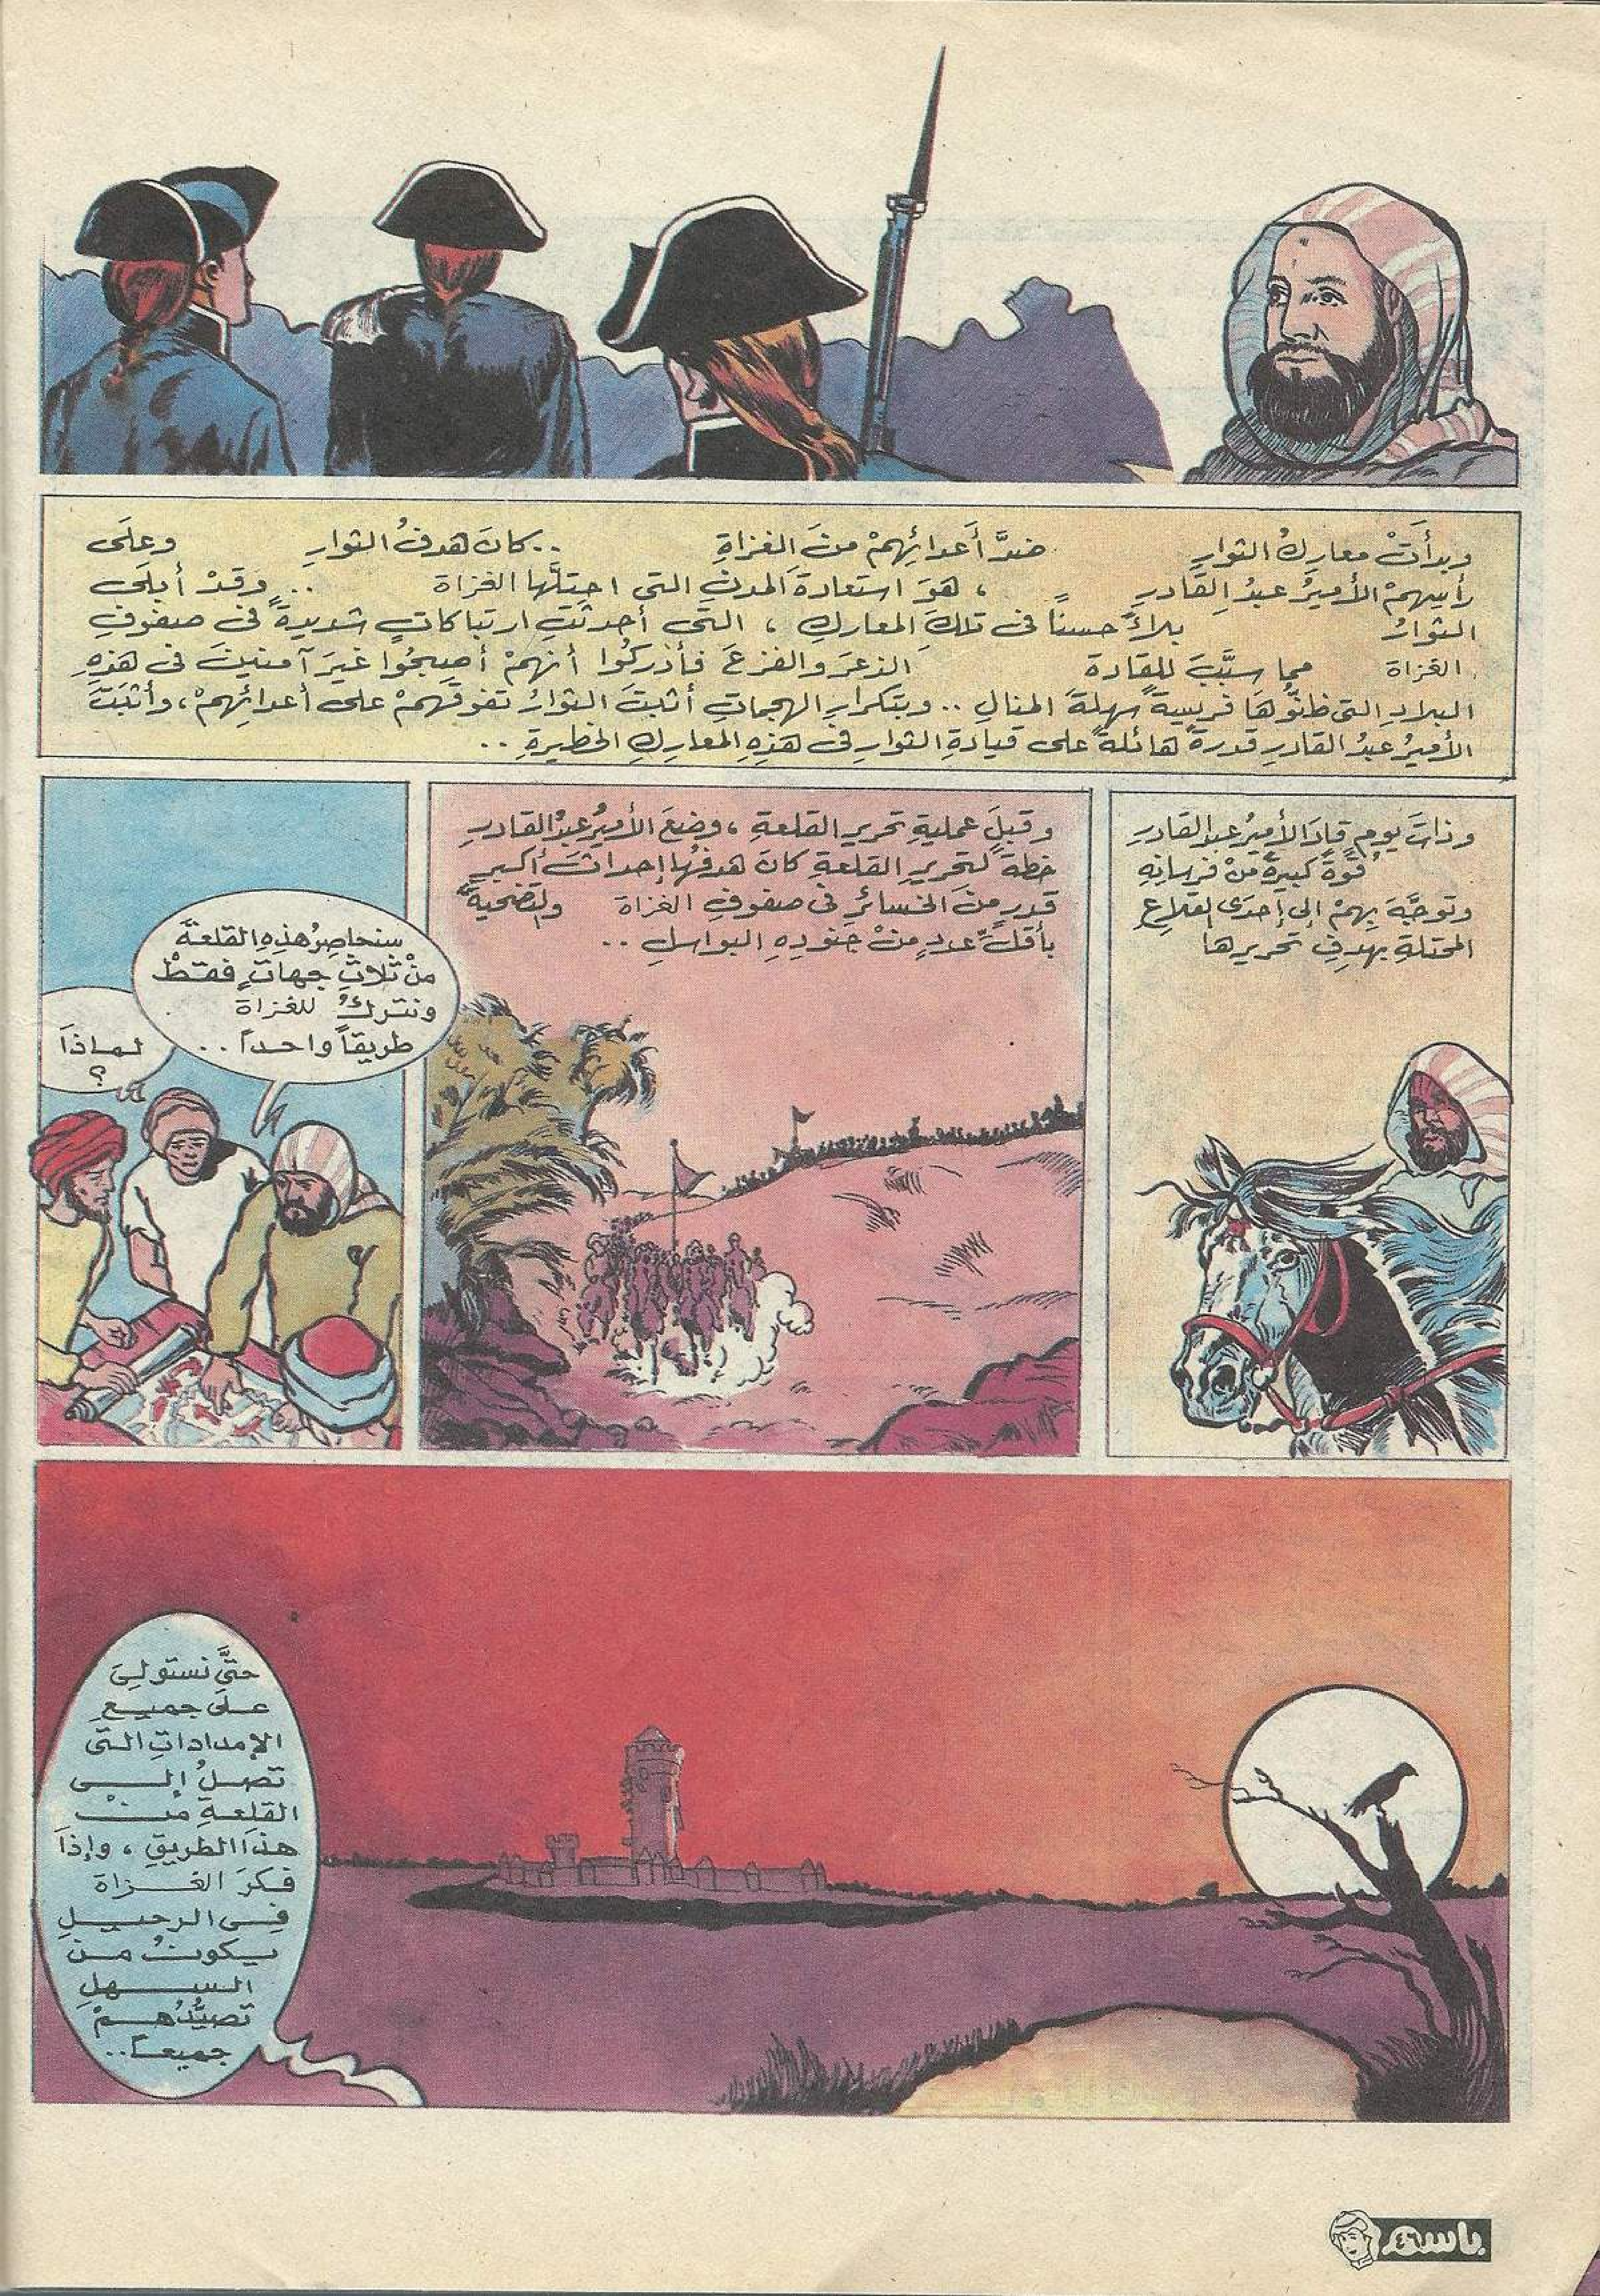 وبدأَتْ معاركُ الثوارِ ضدَّ أَعدائِهِمْ منَ الغزاةِ ..كانَ هدفُ الثوارِ وعلَى
رأسِهِمْ الأميرُ عبدُ القادرِ ، هوَ استعادةَ المدنِ التى احتلَّها الغزاة .. وقدْ أبلَى
الثوارُ بلاءً حسناً فى تلكَ المعاركِ ، التى أحدثَتِ ارتباكاتٍ شديدةً فى صفوفِ
الغزاة مما سبَّبَ للقادة الذعرَ والفزعَ فأدركُوا أنهمْ أصبحُوا غيرَ آمنينَ فى هذهِ
البلادِ التى ظنُّوهَا فريسةً سهلةَ المنالِ .. وبتكرارِ الهجماتِ أثبتَ الثوارُ تفوقَهمْ على أعدائِهمْ، وأثبتَ
الأميرُ عبدُ القادرِ قدرةً هائلةً على قيادةِ الثوارِ فى هذهِ المعاركِ الخطيرةِ ..
وذاتَ يومٍ قادَ الأميرُ عبدالقادرِ
قوةً كبيرةً منْ فرسانِهِ
وتوجَّهَ بِهِمْ إلى إحدَى القلاعِ
المحتلةِ بهدفِ تحريرِها
وقبلَ عمليةِ تحريرِ القلعةِ ، وضعَ الأميرُ عبدُالقادرِ
خطةً لتحريرِ القلعةِ كانَ هدفُها إحداثَ أكبرِ
قدرٍ منَ الخسائرِ فى صفوفِ الغزاة والتضحيةَ
بأقلِّ عددٍ منْ جنودِهِ البواسلِ ..
سنحاصِرُ هذِهِ القلعةَ
منْ ثلاثِ جهاتٍ فقطْ
ونتركُ للغزاة
طريقاً واحداً ..
لماذَا
؟
حتَّى نستولىَ
علَى جميعِ
الإمداداتِ التى
تصلُ إلى
القلعةِ منْ
هذَا الطريقِ ، وإذَا
فكرَ الغزاة
فِى الرحيلِ
يكونُ منَ
السهلِ
تصيُّدُهمْ
جميعاً..
باسم
٤٦